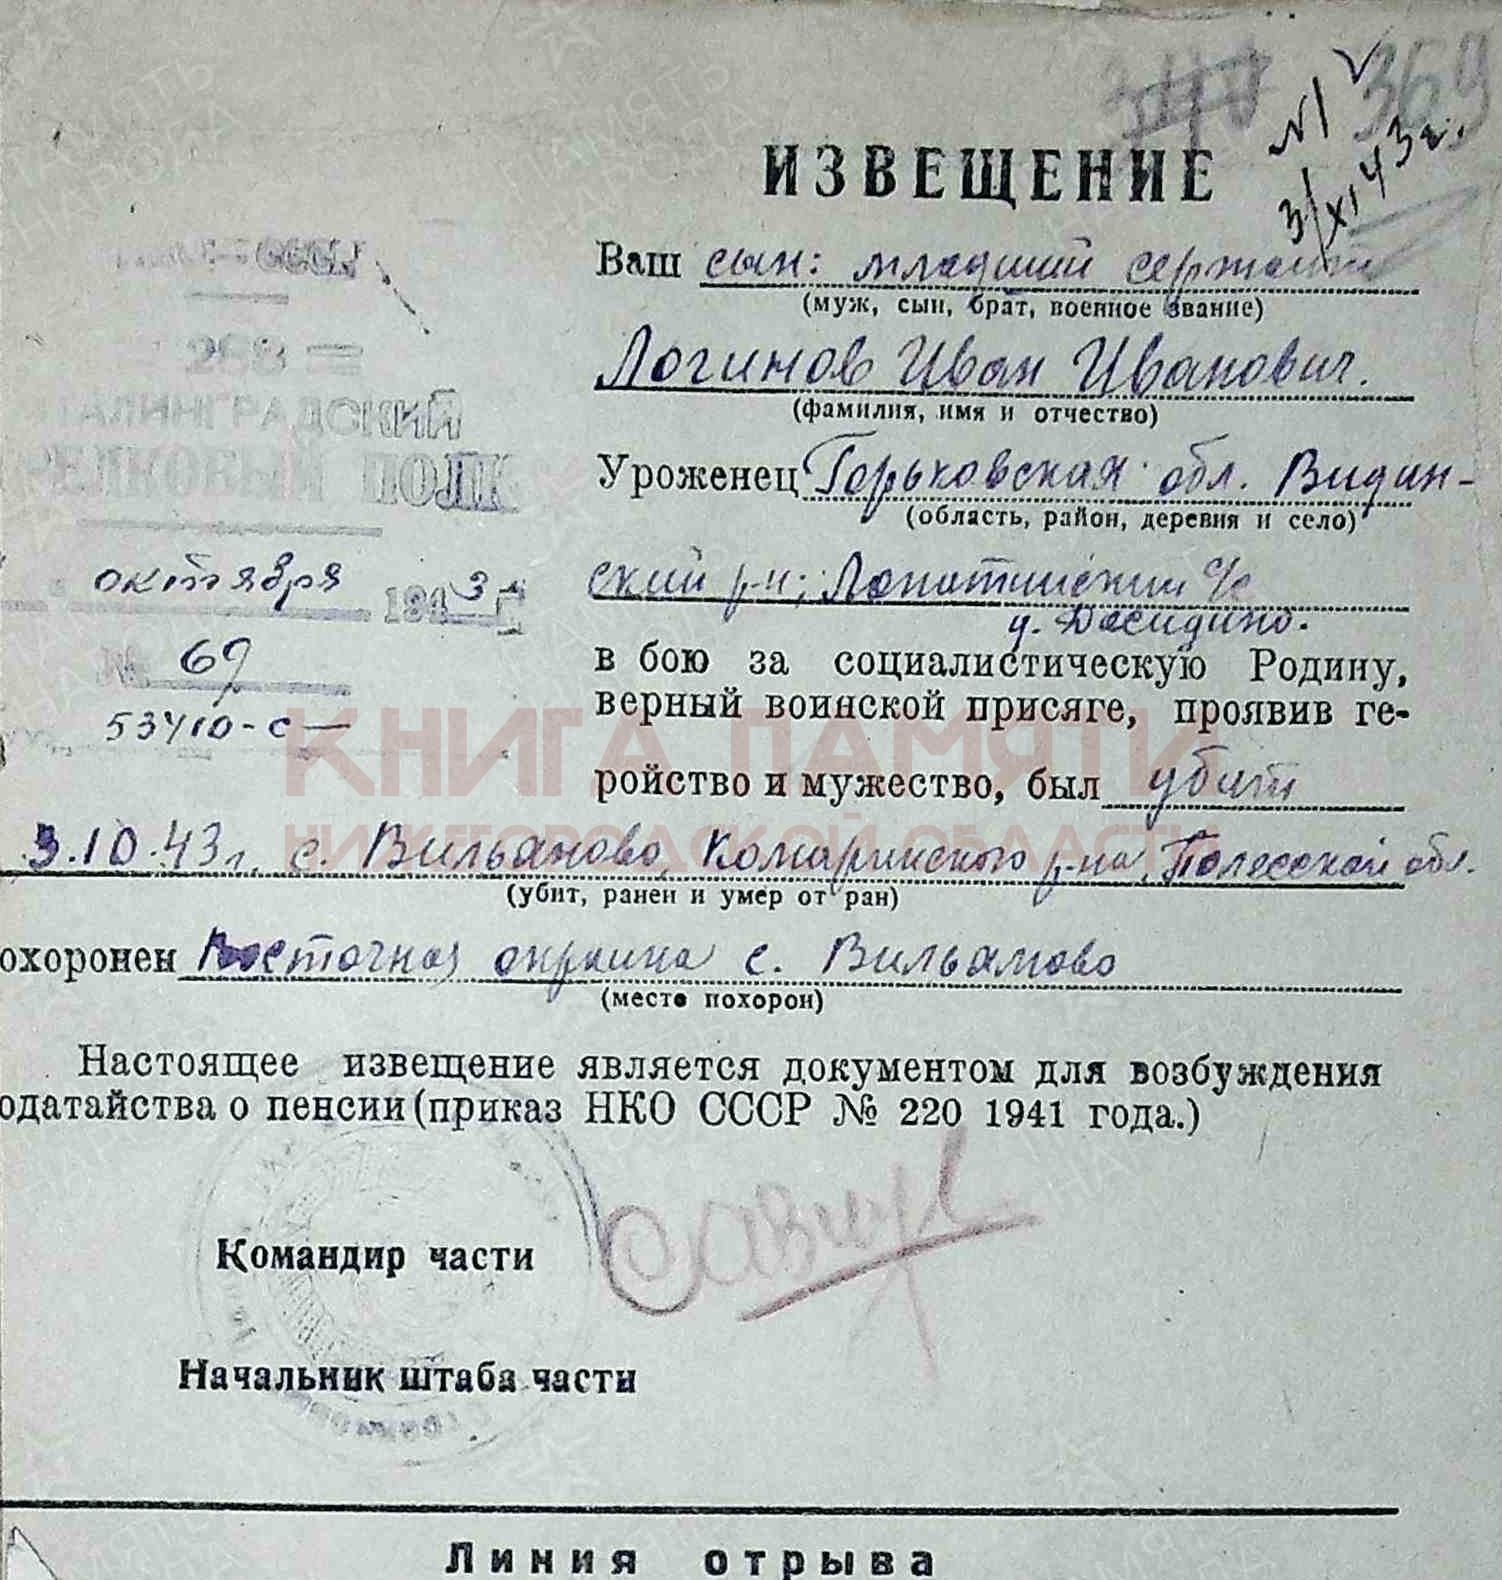 369
№1
3/XI 43г.
ИЗВЕЩЕНИЕ
Ваш сын: младший сержант
(муж, сын, брат, военное звание)
Логинов Иван Иванович.
(фамилия, имя и отчество)
Уроженец Горьковская обл. Видин-
(область, район, деревня и село)
ский р-н; Лопатинский с/с
д.
ТАЛИНГРАДСКИЙ
РЕЛКОВЫЙ ПОЛК
октября 1943 г
№ 69
53410-с
в бою за социалистическую Родину,
верный воинской присяге, проявив ге-
ройство и мужество, был убит
3.10.43г. с. Вильаново, Комаринского р-на, Полесской обл.
(убит, ранен и умер от ран)
охоронен Восточная окраина с. Вильамово
(место похорон)
Настоящее извещение является документом для возбуждения
одатайства о пенсии (приказ НКО СССР № 220 1941 года.)
Командир части
Начальник штаба части
Линия отрыва
КНИГА ПАМЯТИ
НИЖЕГОРОДСКОЙ ОБЛАСТИ